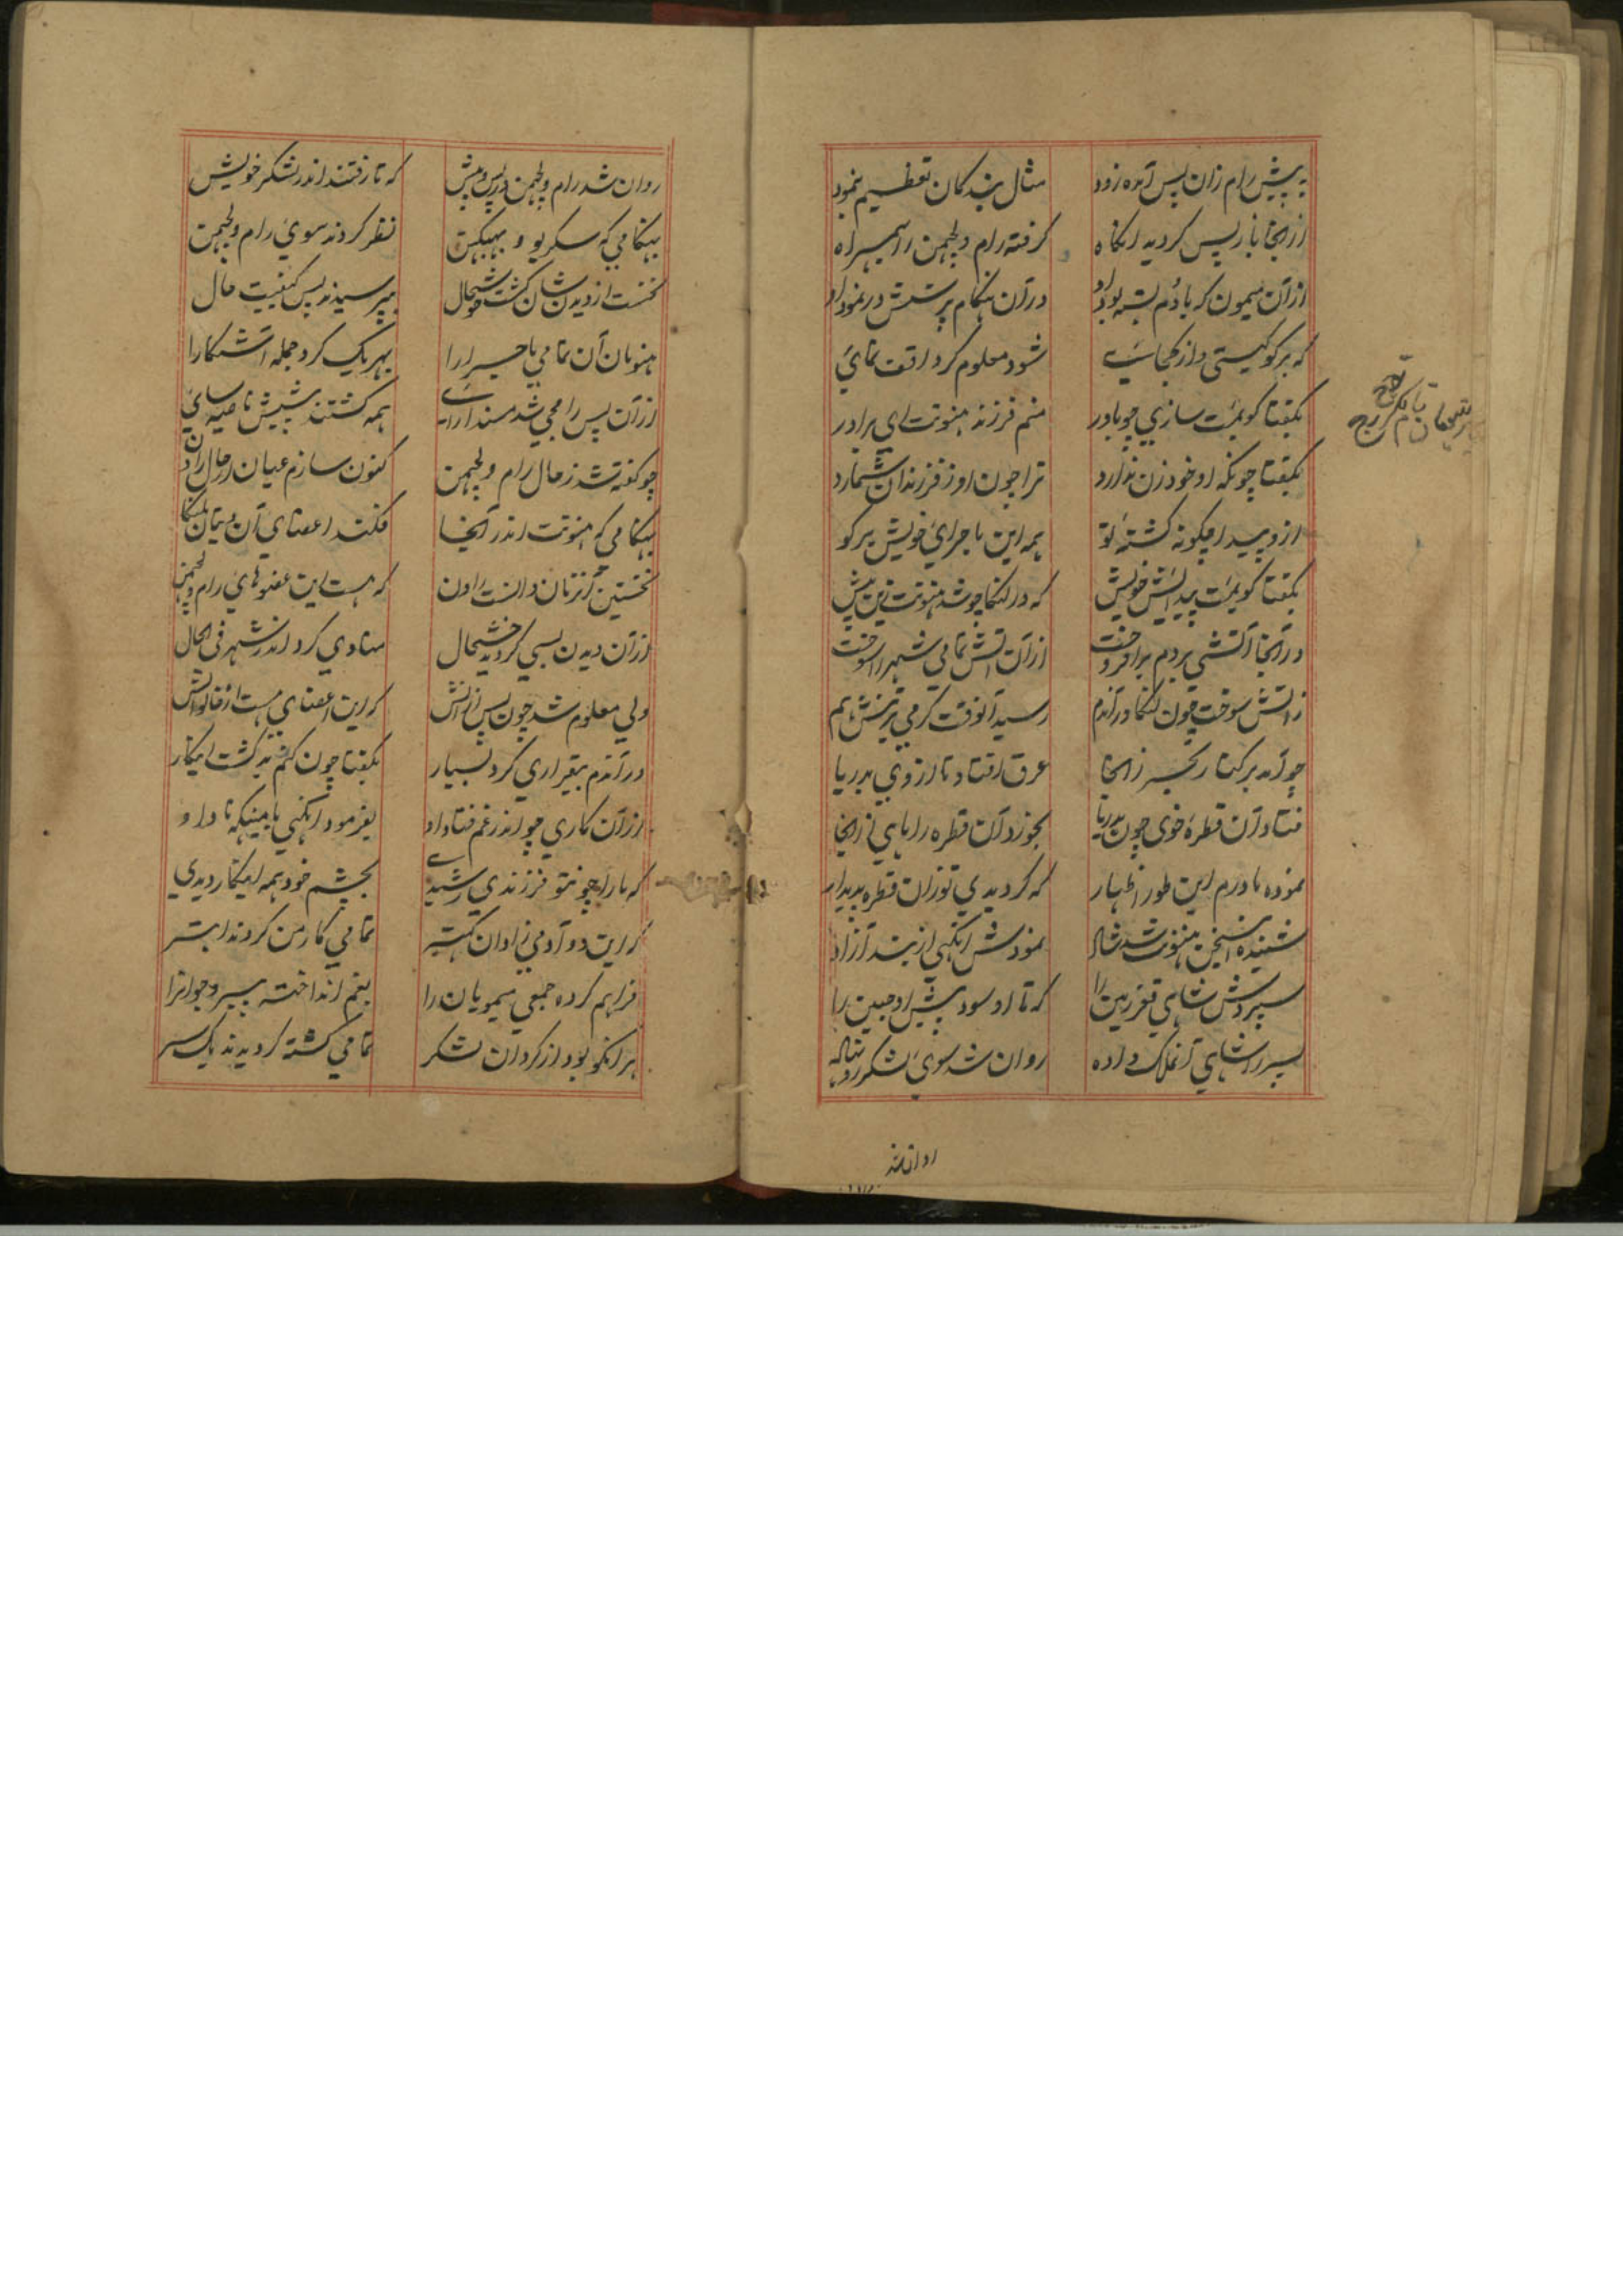 به پیش رام زان پس آمده زود مثال بندگان تعظیم بنمود
از آنجا باز پس گردید آنگاه گرفته رام و لچمن را بهمراه
از آن میمون که با دم بسته بود او در آن هنگام پرسش در نمود او
که برگو کیستی و از کجائی شود معلوم گر واقف نمائی
بگفتا گویمت سازی چو باور منم فرزند هنونت ای برادر
بگفتا چونکه او خود زن ندارد ترا چون او ز فرزندان شمارد
ازو پیدا چگونه گشتهٔ تو همه این ماجرای خویش برگو
بگفتا گویمت پیدائش خویش که در لنکا چو شد هنونت زین پیش
در آنجا آتشی بر دم برافروخت از آن آتش تمامی شهر را سوخت
ز آتش سوخت چون لنکا در آندم رسید آنوقت گرمی بر تنش هم
چو آمد بر کنار بحر ز آنجا عرق افتاد تا از وی بدریا
فتاد آن قطرهٔ خوی چون بدریا بخورد آن قطره را ماهی ز آنجا
نموده مادرم این طور اظهار که گردیدی تو زان قطره پدیدار
شنیده این سخن هنونت شد شاد نمودش آنگهی از بند آزاد
سپردش شاهی تفرین را که تا او سود پیش او جبین را
پسر را شاهی آنملک داده روان شد سوی لشکر
روان شد
روان شد رام و لچمن در پس و پیش که تا رفتند اندر لشکر خویش
بهنگامی که سکریو و بهبیکن نظر کردند سوی رام و لچمن
نخست از دیدن شان گشت خوشحال بپرسیدند پس کیفیت حال
هنومان آن تمامی ماجرا را بهر یک کرد جمله آشکارا
از آن پس رامجی شد مسند آرای همه گشتند پیشش ناصیه سای
چو گفته شد ز حال رام و لچمن کنون سازم عیان احوال راون
بهنگامی که هنونت اندر آنجا فکند اعضای آن دیوان بلنکا
نخستین آنزمان دانست راون که هست این عضوهای رام و لچمن
از آن دیدن بسی گردید خوشحال منادی کرد اندر شهر فی الحال
ولی معلوم شد چون پس از آنش که این اعضای هست
در آندم بیقراری کرد بسیار بگفتا چون کنم بد گشت اینکار
از آن کاری چو اندر غم فتاد او بفرمود آنگهی با میکهنا داد او
که ما را چو نتو فرزندی رشیدی بچشم خود همه اینکار دیدی
که این دو آدمی زادان کهتر تمامی کار من کردند ابتر
فراهم کرده جمعی میمویان را بغم انداخته پیر و جوان را
هر آنکو بود از گردان لشکر تمامی کشته گردیدند یک سر